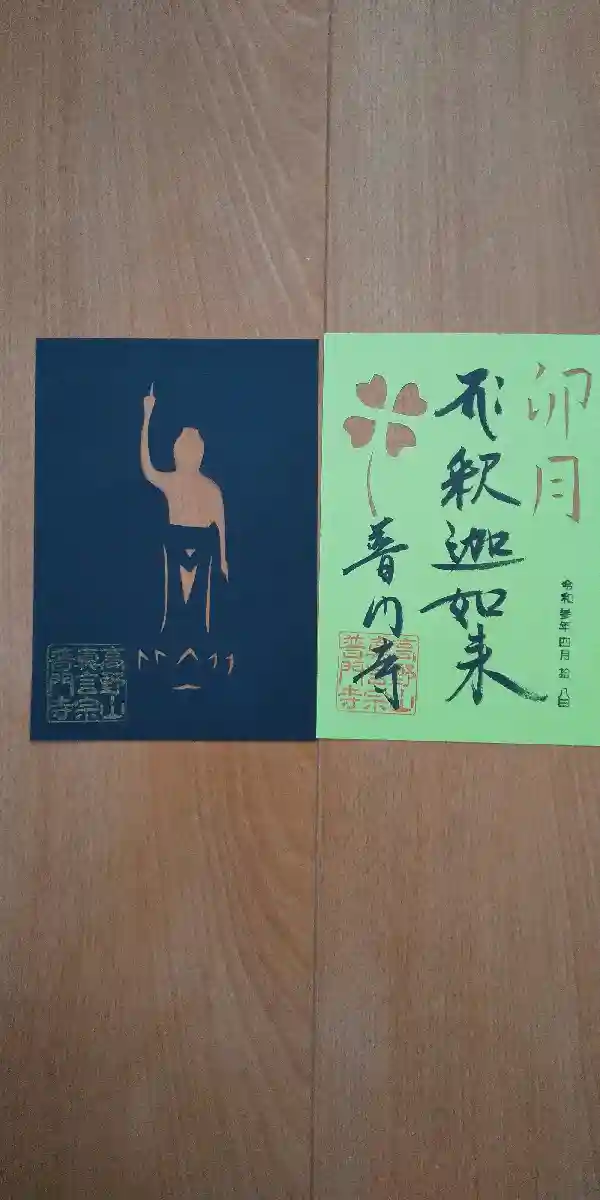 卯月
釈迦如来
令和参年四月拾八日
普門寺
高野山
真言宗
普門寺
高野山
真言宗
普門寺